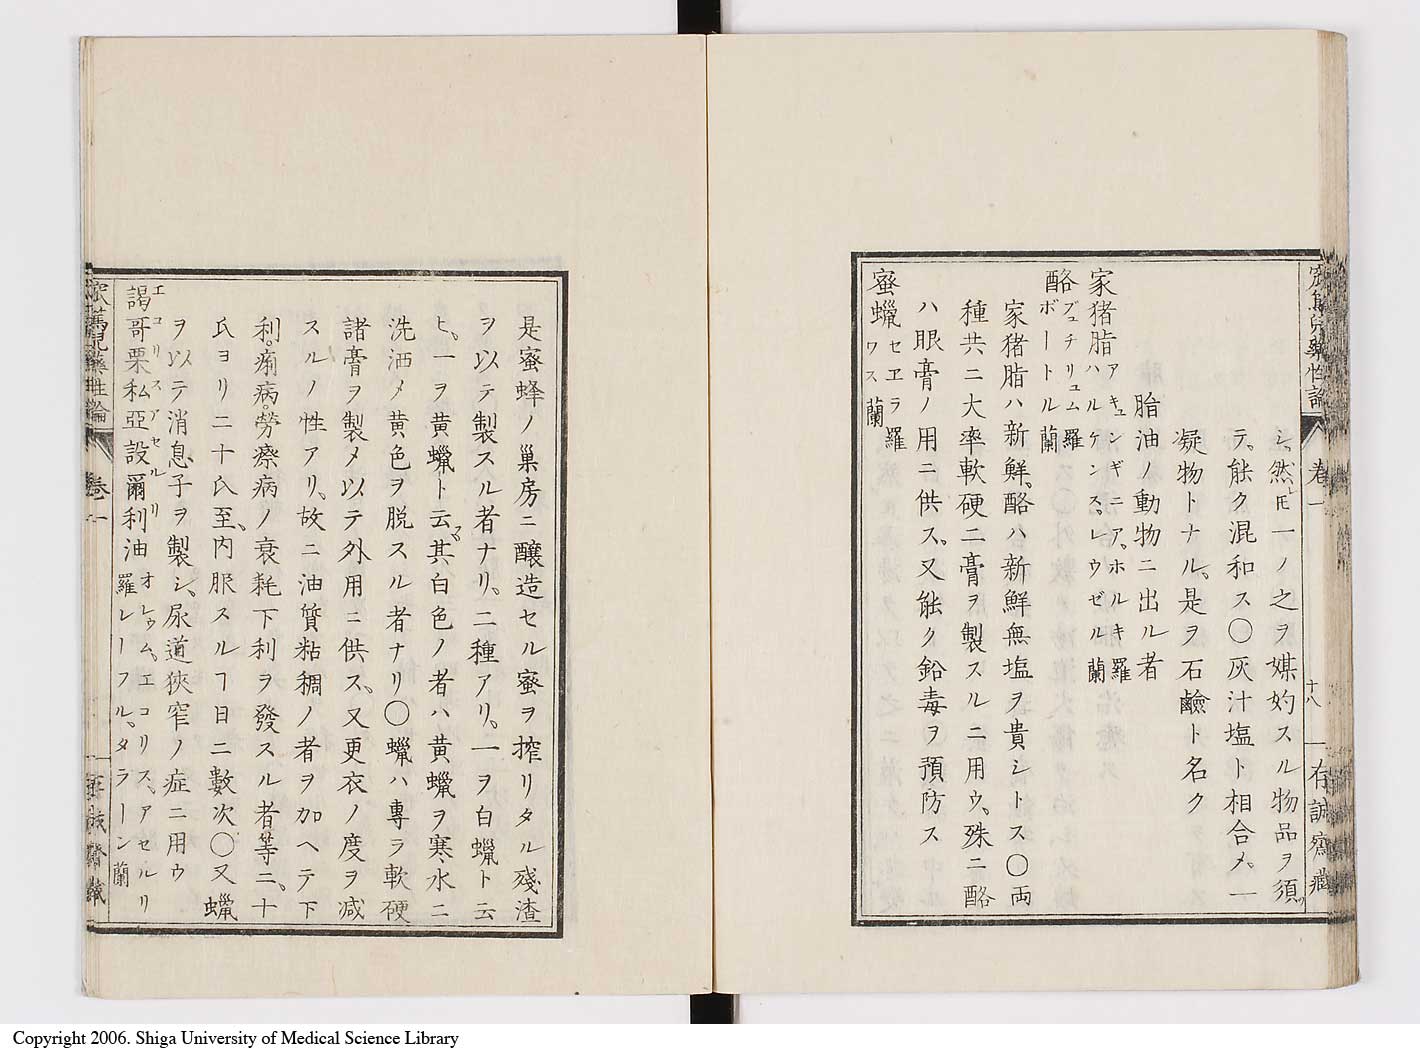 シ、然𪜈一ノ之ヲ媒妁スル物品ヲ須ツ
テ、能ク混和ス〇灰汁塩ト相合メ、一
凝物トナル、是ヲ石鹼ト名ク
脂油ノ動物ニ出ル者
家猪脂 アキュンギア、ホルキ 羅 ハルケンス、レウゼル 蘭
酪 ブュチリュム 羅 ボートル 蘭
家猪脂ハ新鮮、酪ハ新鮮無塩ヲ貴シトス〇両
種共ニ大率軟硬二膏ヲ製スルニ用ウ、殊ニ酪
ハ眼膏ノ用ニ供ス、又能ク鉛毒ヲ預防ス
蜜蠟 セエラ 羅 ワス 蘭
卷一
十八
存誠齋藏
是蜜蜂ノ巢房ニ釀造セル蜜ヲ搾リタル殘渣
ヲ以テ製スル者ナリ、二種アリ、一ヲ白蠟ト云
ヒ、一ヲ黄蠟ト云フ、其白色ノ者ハ黄蠟ヲ寒水ニ
洗洒メ黄色ヲ脱スル者ナリ〇蠟ハ專ラ軟硬
諸膏ヲ製メ以テ外用ニ供ス、又更衣ノ度ヲ减
スルノ性アリ、故ニ油質粘稠ノ者ヲ加ヘテ下
利。痢病。勞瘵病ノ衰耗下利ヲ發スル者等ニ、十
氏ヨリ二十氏ニ至、内服スルヿ日ニ數次〇又蠟
ヲ以テ消息子ヲ製シ、尿道狹窄ノ症ニ用ウ
謁哥栗私亞設爾利油 エコリスアセルリ オレウム、エコリス、アセルリ 羅 レーフル、タラーン 蘭
藥性論
卷一